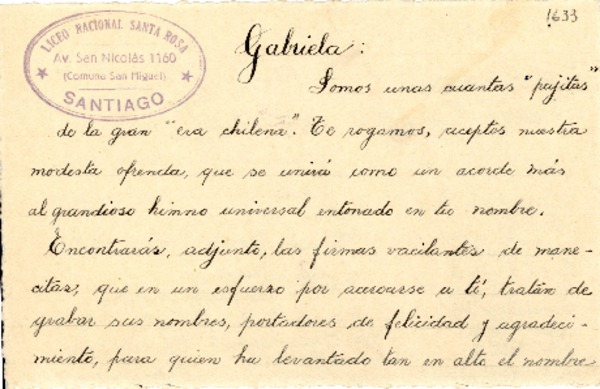 1633
LICEO RACIONAL SANTA ROSA
Av. San Nicolás 1160
(Comuna San Miguel)
SANTIAGO
Gabriela:
Somos unas cuantas "pajitas"
de la gran "era chilena". Te rogamos, aceptes nuestra
modesta ofrenda, que se unirá como un acorde más
al grandioso himno universal entonado en tu nombre.
Encontrarás, adjunto, las firmas vacilantes de mane-
citas; que en un esfuerzo por acercarse a tí, tratan de
grabar sus nombres, portadores de felicidad y agradeci-
miento, para quien ha levantado tan en alto el nombre